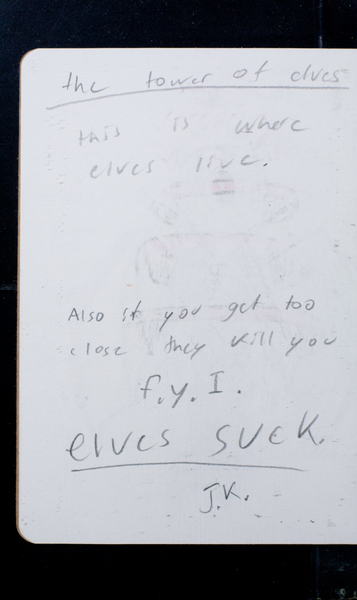 the tower of elves
this is where
elves live.
Also if you get too
close they kill you
f.y.I.
elves suck.
J.K.